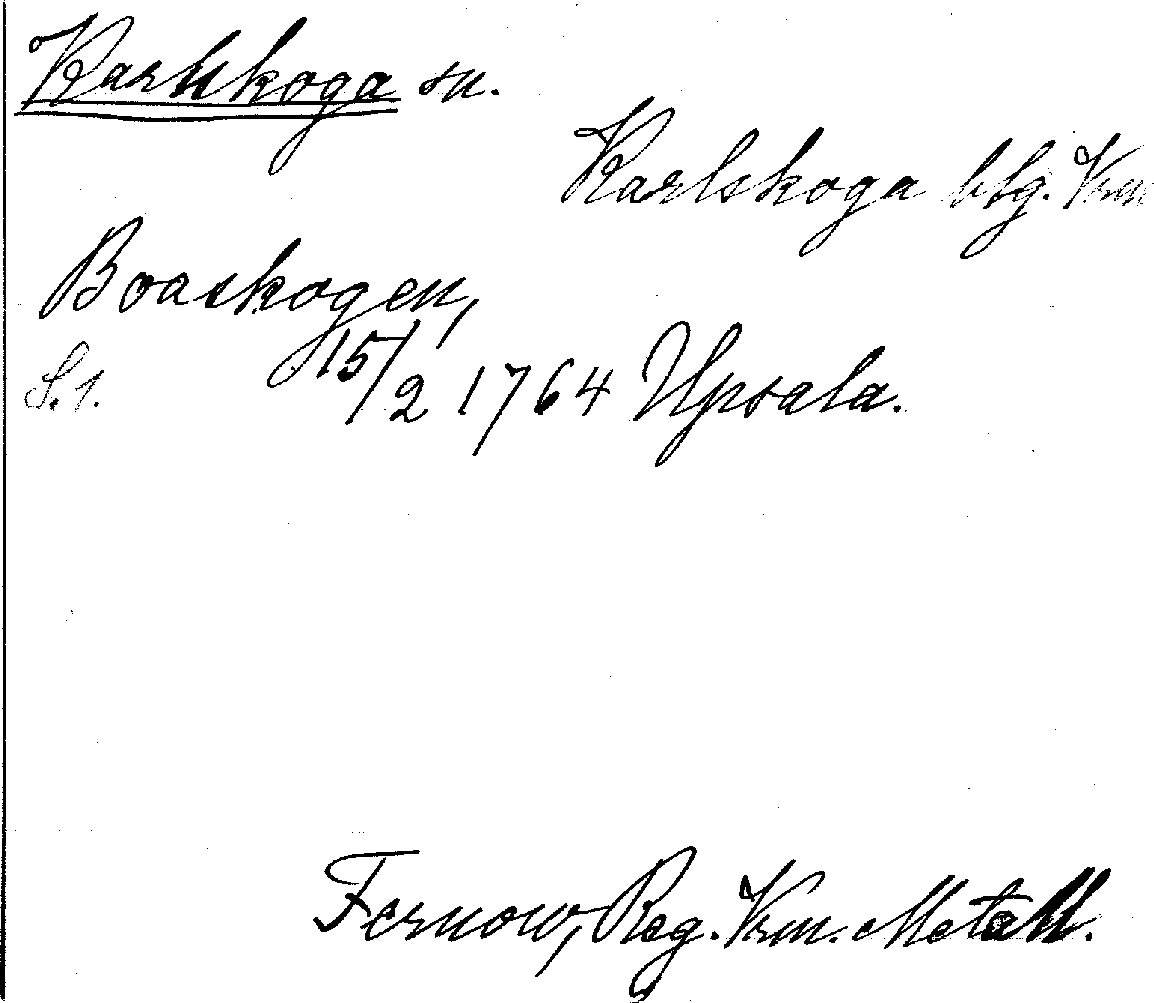 Karlskoga sn.
Karlskoga bfg. Vrm
Boaskogen,
S. 1. 15/2 1764 Upsala.
Fernow, Reg. Vrm. Metall.